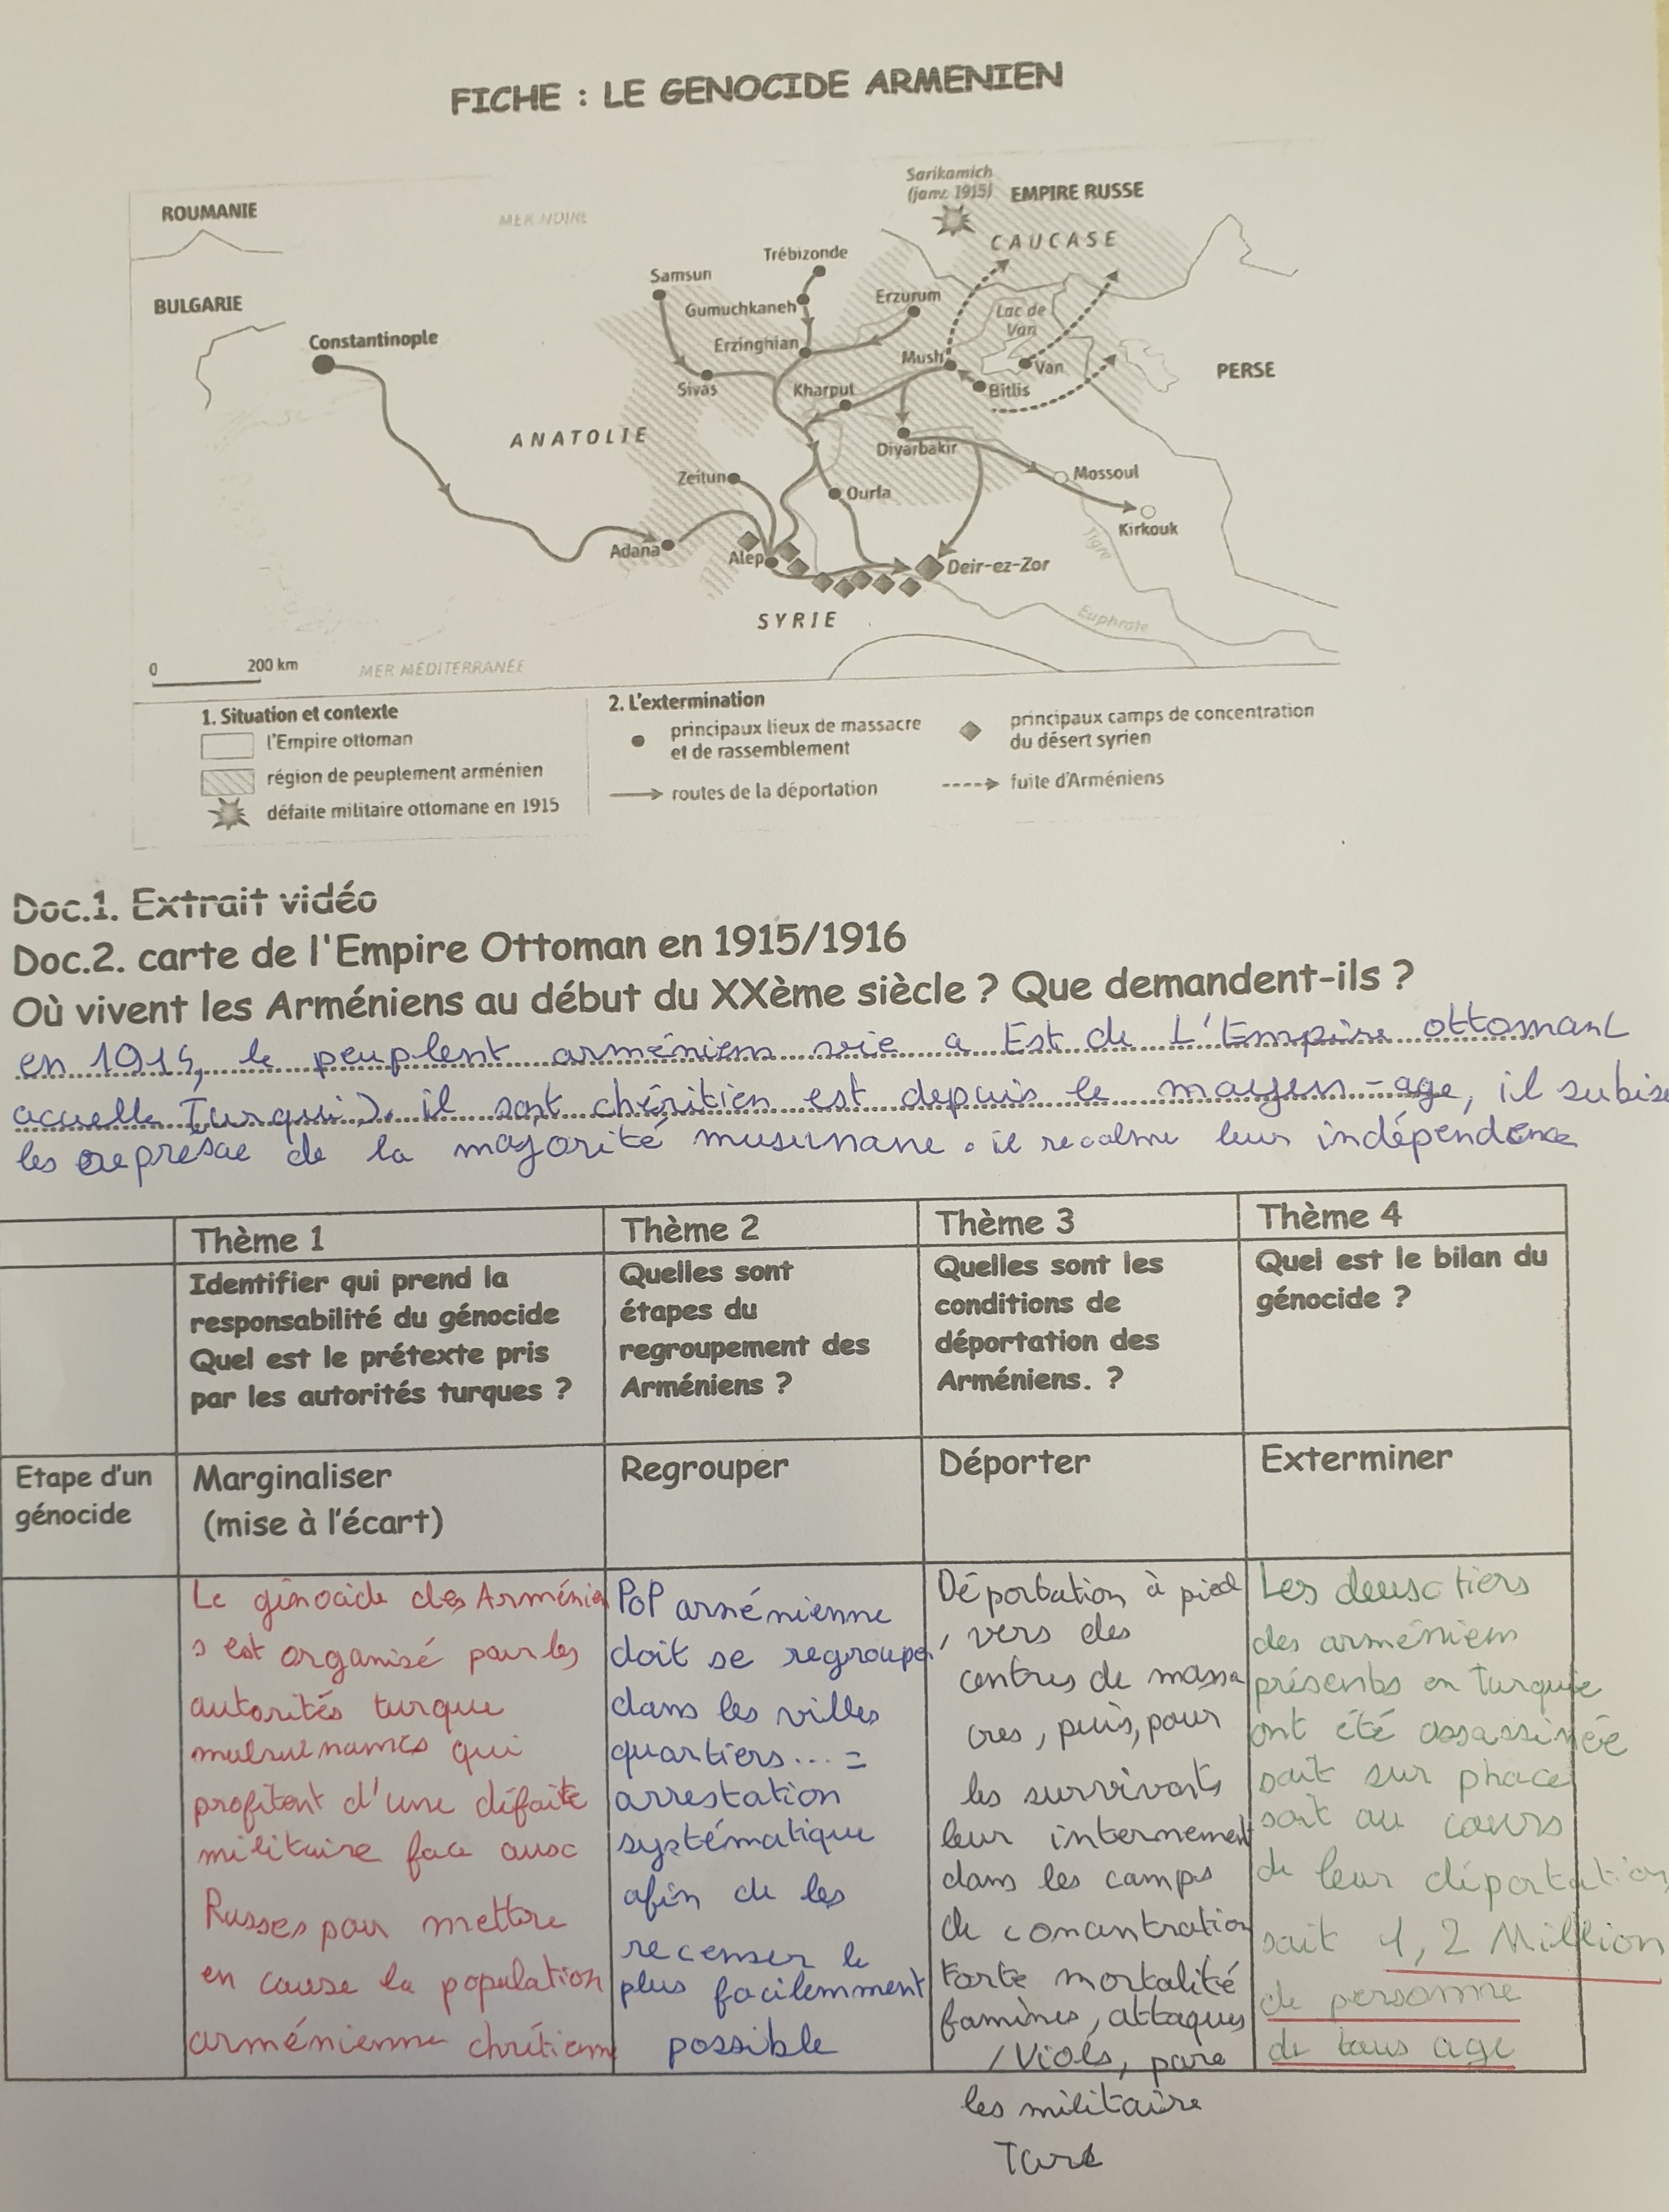 FICHE : LE GENOCIDE ARMENIEN
Sarikamich
(janv. 1915)
EMPIRE RUSSE
ROUMANIE
MER NOIRE
CAUCASE
Trébizonde
Samsun
BULGARIE
Gumuchkaneh
Erzurum
Lac de
Van
Constantinople
Erzinghian
Mush
Van
PERSE
Sivas
Kharput
Bitlis
ANATOLIE
Diyarbakir
Zeitun
Mossoul
Ourfa
Kirkouk
Tigre
Adana
Alep
Deir-ez-Zor
SYRIE
Euphrate
0 200 km
MER MÉDITERRANÉE
1. Situation et contexte
l'Empire ottoman
région de peuplement arménien
défaite militaire ottomane en 1915
2. L'extermination
principaux lieux de massacre
et de rassemblement
routes de la déportation
principaux camps de concentration
du désert syrien
fuite d'Arméniens
Doc.1. Extrait vidéo
Doc.2. carte de l'Empire Ottoman en 1915/1916
Où vivent les Arméniens au début du XXème siècle ? Que demandent-ils ?
en 1914, le peuplent arméniens vie a Est de L'Empire ottomant
acuelle Turqui). il sont chéritien est depuis le mayen-age, il subise
les represae de la majorité musumane. il recalme leur indépendence
Thème 1
Identifier qui prend la
responsabilité du génocide
Quel est le prétexte pris
par les autorités turques ?
Thème 2
Quelles sont
étapes du
regroupement des
Arméniens ?
Thème 3
Quelles sont les
conditions de
déportation des
Arméniens. ?
Thème 4
Quel est le bilan du
génocide ?
Etape d'un
génocide
Marginaliser
(mise à l'écart)
Regrouper
Déporter
Exterminer
Le génocide des Arménien
s est organisé par les
autorités turque
mulsulnames qui
profitent d'une défaite
militaire face aux
Russes pour mettre
en cause la population
arménienne chrétienne
PoP arménienne
doit se regrouper
dans les villes
quartiers... =
arrestation
systématique
afin de les
recenser le
plus facilemment
possible
Déportation à pied
, vers des
centres de massa
cres, puis, pour
les survivants
leur internement
dans les camps
de concentration
Forte mortalité
famines, attaques
/Viols, pare
les militaire
Turc
Les deux tiers
des arméniens
présents en Turquie
ont été assassinée
soit sur phace
soit au cours
de leur déportation
soit 1,2 Million
de personne
de tous age